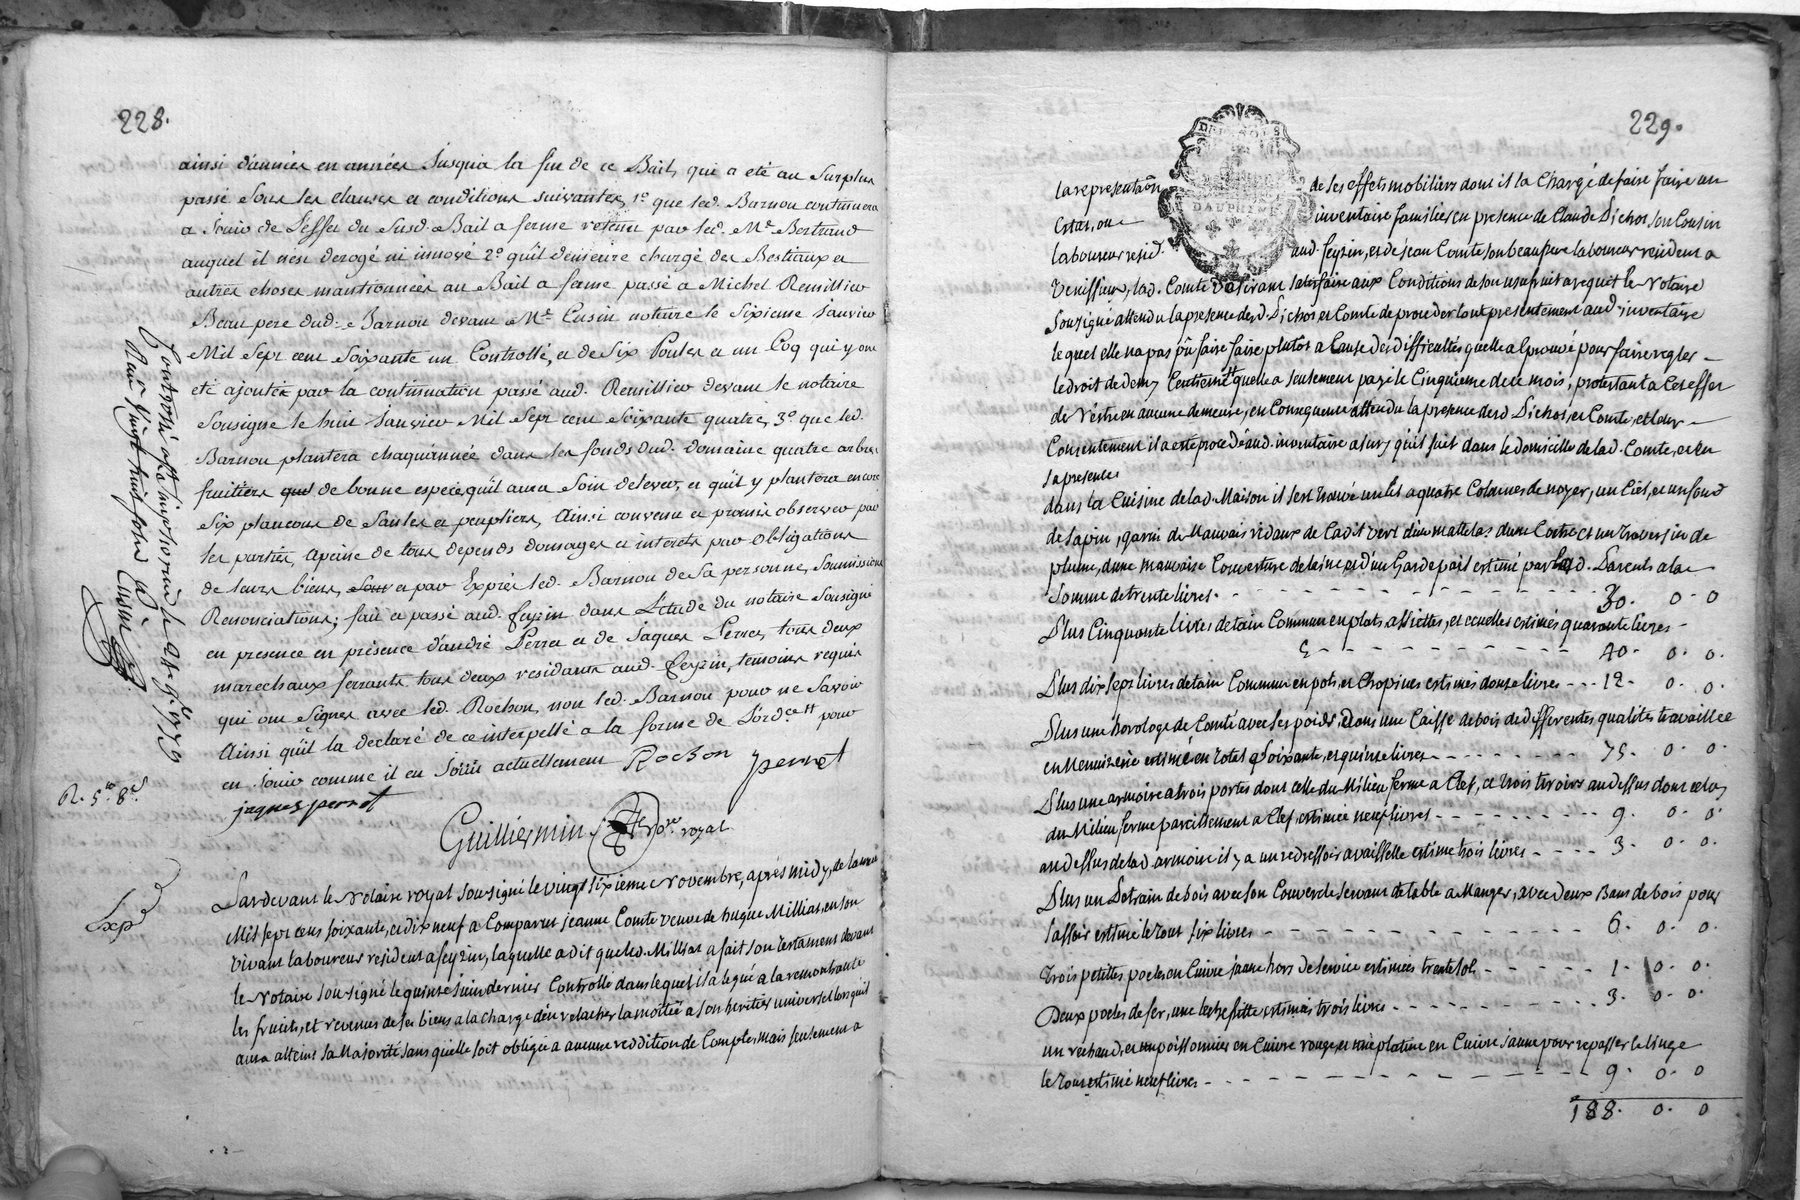 228.
ainsi d'années en années jusqua la fin de ce Bail, qui a eté au surplus
passé sous les clauses et conditions suivantes, 1º que led. Barnou continuera
a jouir de l'effet du susd. Bail a ferme retenu par led. Me. Bertrand
auquel il n'est derogé ni innové 2º qu'il demeure chargé des Bestiaux et
autres choses mantionnées au Bail a ferme passé a Michel Remillieu
Beau pere dud. Barnou devant Me. Cusin notaire le sixieme janvier
Mil sept cent soixante un Controllé, et de six Poules et un Coq qui y ont
eté ajoutés par la continuation passé aud. Remillieu devant le notaire
sousigné le huit janvier Mil sept cent soixante quatre, 3º que led.
Barnou plantera chaqu'année dans les fonds dud. domaine quatre arbres
fruitiers de bonne espece qu'il aura soin d'elever, et qu'il y plantera encore
six plancons de saules et peupliers, Ainsi convenu et promis observer par
les parties, apeine de tous depends domages et interets par obligations
de leurs biens, et par Exprés led. Barnou de sa personne, soumissions
Renonciations; fait et passé aud. feyzin dans L'etude du notaire sousigné
en presence en présence d'andré Perret et de jaques Perret, tous deux
marechaux ferrants tous deux residants aud. feyzin, temoins requis
qui ont signés avec led. Rochon, non led. Barnou pour ne savoir
Ainsi qu'il la declaré de ce interpellé a la forme de L'ordce. pour
en jouir comme il en jouit actuellement Rochon perret
jaques perret
Guilliermin nore. royal
Controllé
Cusin
R. 5s. 8d.
Expé
Pardevant le Notaire royal sousigné le vingt sixieme Novembre, aprés midy, de l'année
Mil sept cens soixante, et dix neuf a comparu jeanne Comte veuve de hugue Milliat, en son
vivant laboureur resident a feyzin, laquelle a dit que led. Milliat a fait son testament devant
le Notaire sousigné le quinse juin dernier Controllé dans lequel il a legué a la remontrante
les fruits, et revenus de ses biens a la charge d'en relacher la moitié a son heritier universel lorsqu'il
aura atteint sa Majorité sans quelle soit obligée a aucune reddition de Comptes, mais seulement a
229.
DAUPHINÉ
la représentaōn de ses effets mobiliers dont il la chargé de faire faire un
Estat, ou inventaire familier en presence de Claude Pichot son Cousin
laboureur resid. aud. feyzin, et de jean Comte son beau frere laboureur resident a
Venissieux, lad. Comte désirant satisfaire aux Conditions de son usufruit a requit le Notaire
sousigné attendu la presence desd. Pichot et Comte de proceder tout presentement aud. inventaire
lequel elle na pas pû faire faire plutôt a cause des difficultés quelle a éprouvé pour faire regler
le droit de demy Centieme quelle a seulement payé le Cinquieme de ce mois, protestant a cet effet
de n'être en aucune demeure, en Consequence attendu la presence desd Pichot, et Comte, et leur
Consentement il a esté procedé aud. inventaire a suy qu'il suit dans le domicille de lad. Comte, et en
sa presence
dans la Cuisine de lad. Maison il s'est trouvé un lit a quatre Colonnes de noyer, un Ciel, et un fond
de sapin, garni de Mauvais rideaux de Cadit vert d'un mattelas d'une Coitre, et un traversier de
plume, d'une mauvaise Couverture de laine, et d'un Gardepaille estimé par led. Parents a la
somme de trente livres. 30. 0. 0
Plus Cinquante livres d'etain Commun en plats, assiettes, et ecuelles estimés quarante livres
40. 0. 0.
Plus dix sept livres d'etain Commun en pots, et Chopines estimés douse livres 12. 0. 0.
Plus une horologe de Comté avec ses poids, dans une Caisse de bois de differentes qualités travaillée
en Menuizerie estimé en total soixante, et quinse livres 75. 0. 0
Plus une armoire a trois portes dont celle du Milieu ferme a Clef, et trois tiroirs au dessus dont celuy
du Milieu ferme pareillement a Clef, estimée neuf livres 9. 0. 0
au dessus de lad armoire il y a un redressoir a vaisselle estimé trois livres 3. 0. 0.
Plus un Petrain de bois avec son Couvercle servant de table a Manger, avec deux Bans de bois pour
s'assoir estimé le tout six livres 6. 0. 0.
Trois petites poeles en Cuivre jaune hors de service estimées trente sols 1. 10. 0.
Deux poeles de fer, une lechefritte estimés trois livres 3. 0. 0.
un rechaud, et un poissonnier en Cuivre rouge, et une platine en Cuivre jaune pour repasser le linge
le tout estimé neuf livres 9. 0. 0
188. 0. 0